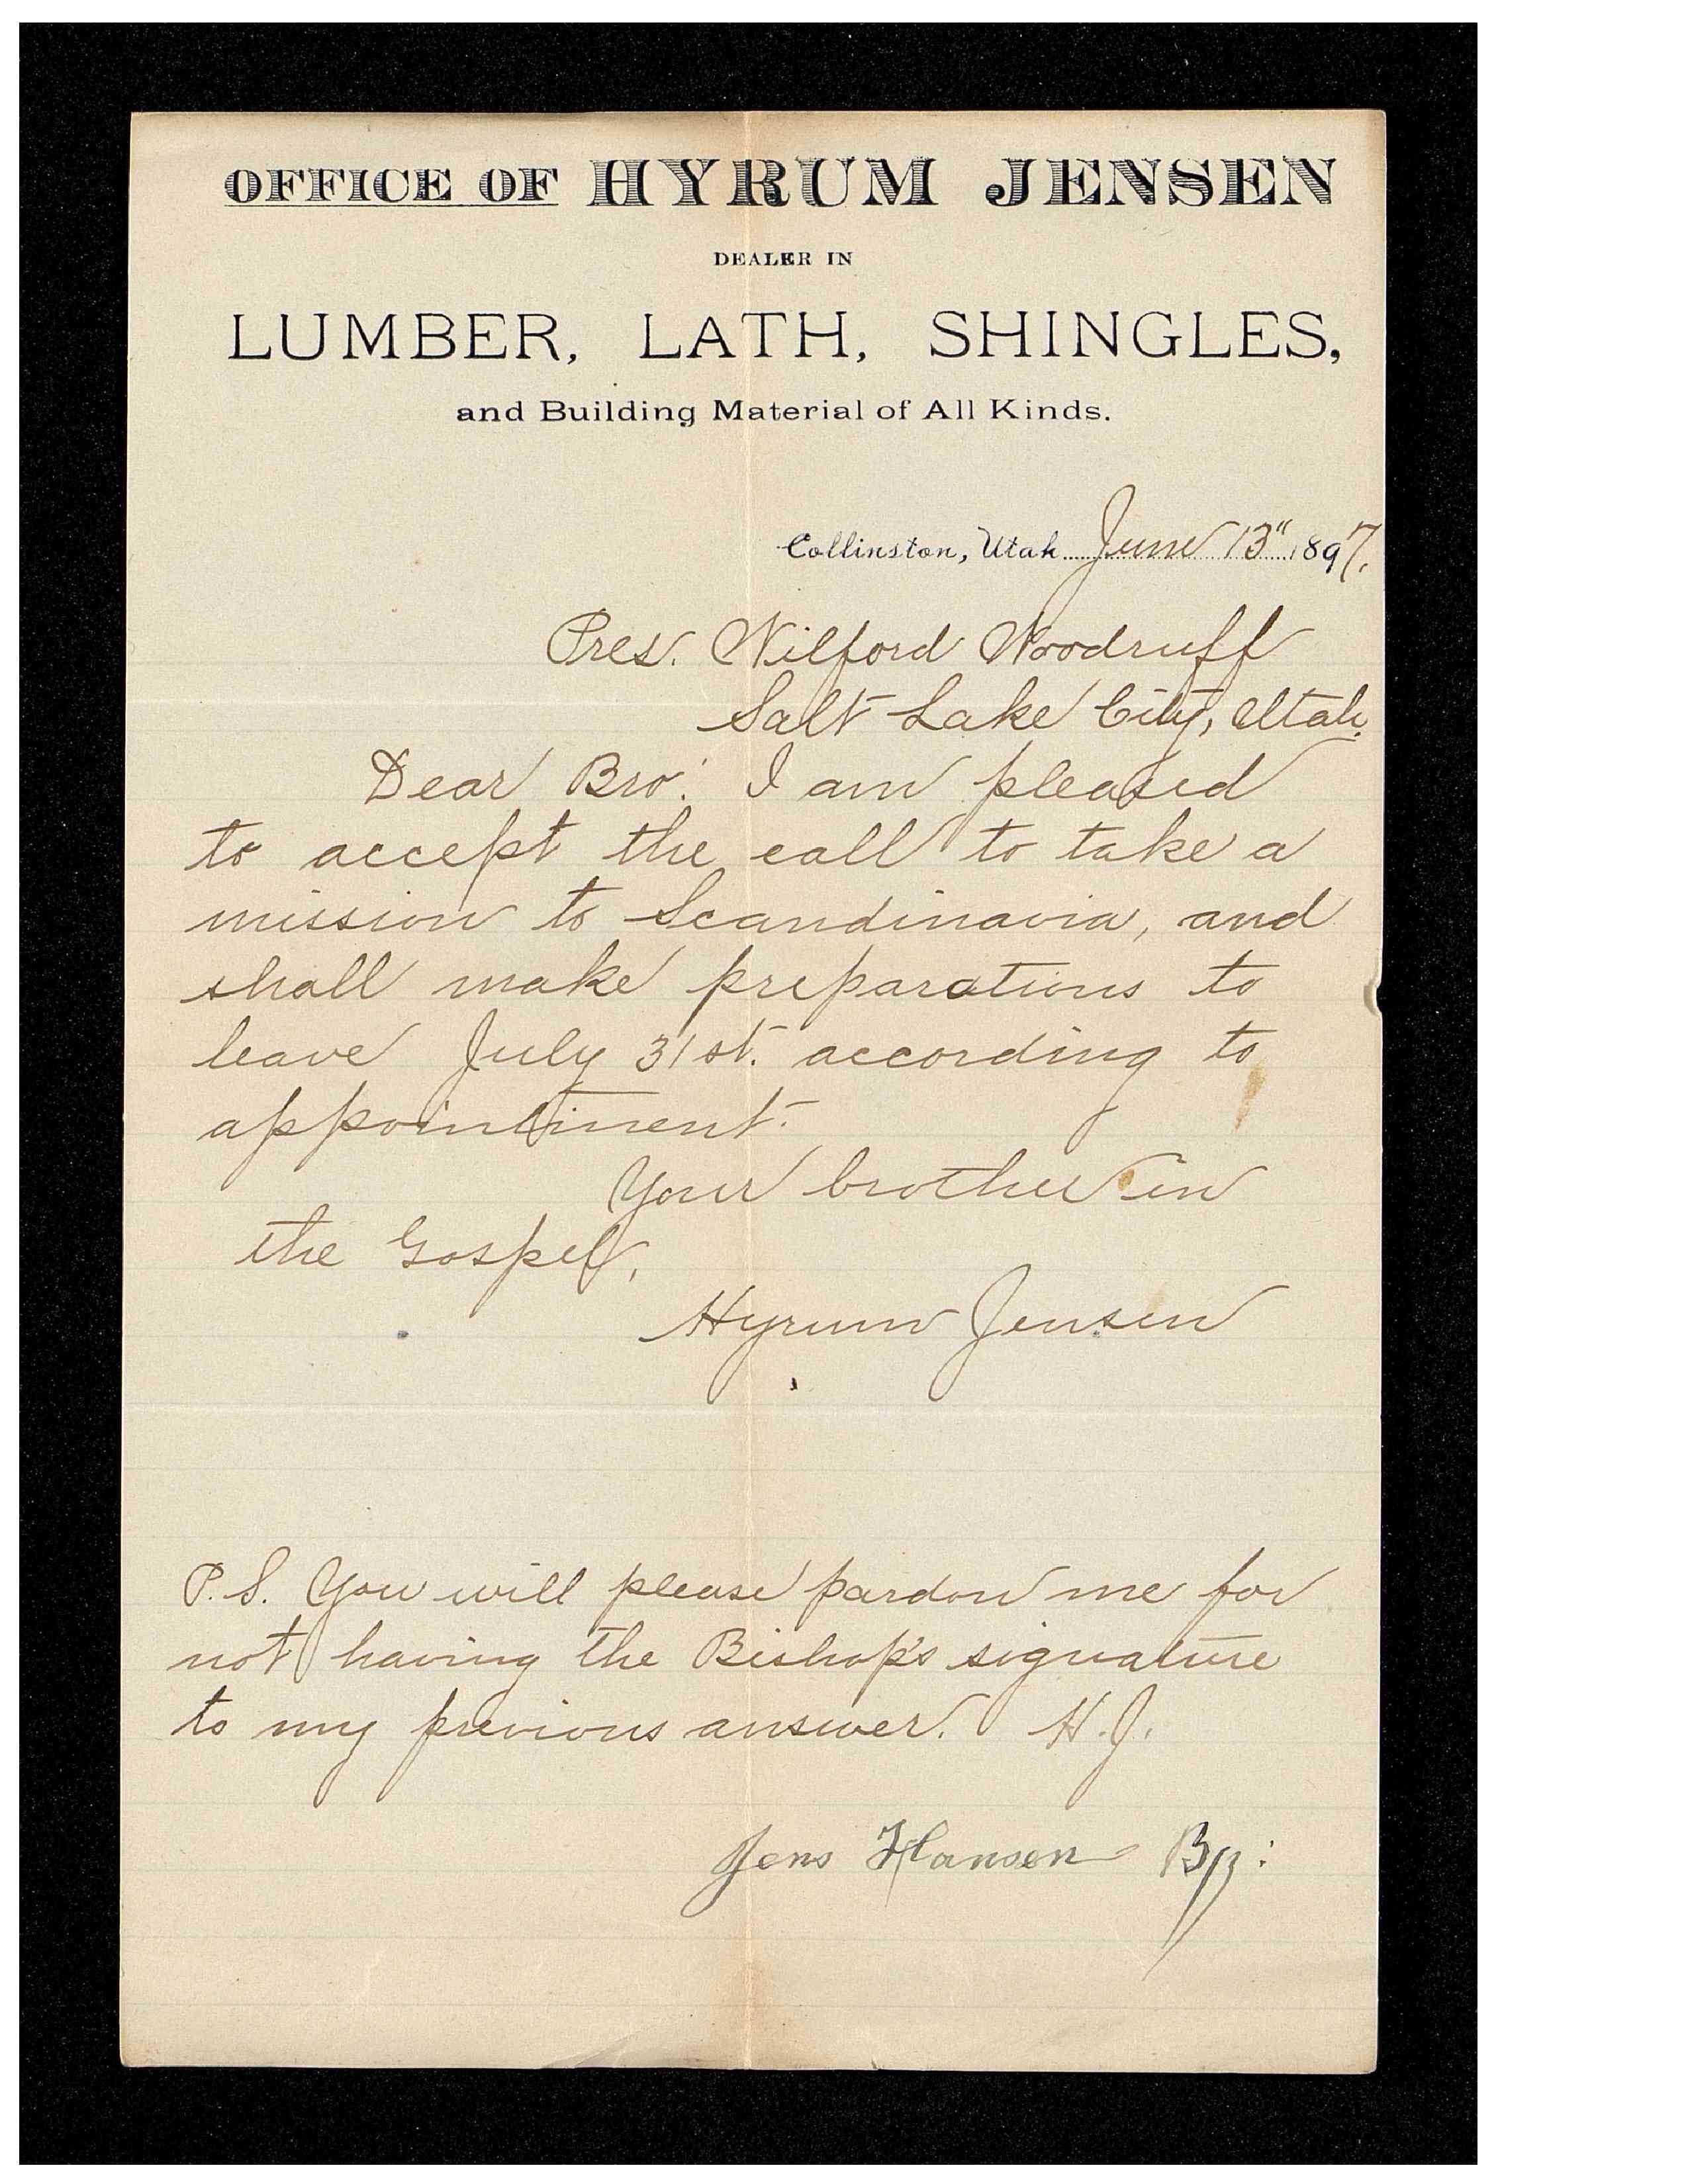 OFFICE OF HYRUM JENSEN
DEALER IN
LUMBER, LATH, SHINGLES,
and Building Material of All Kinds.
Collinston, Utah June 13" 1897.
Pres. Wilford Woodruff
Salt Lake City, Utah.
Dear Bro: I am pleased
to accept the call to take a
mission to Scandinavia, and
shall make preparations to
leave July 31st. according to
appointment.
Your brother in
the Gospel,
Hyrum Jensen
P.S. You will please pardon me for
not having the Bishop's signature
to my previous answer. H.J.
Jens Hansen Bp: